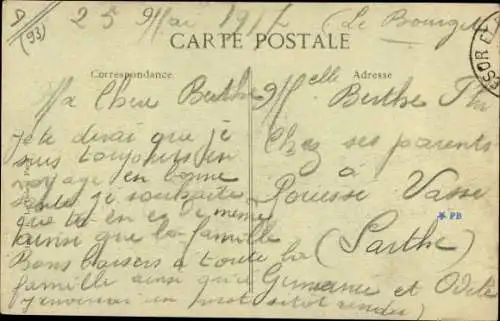 (93)
25 Mai 1917 (Le Bourget
CARTE POSTALE
Correspondance
Adresse
Ma Chère Berthe
je te dirai que je
suis toujours en
voyage en bonne
santé je souhaite
que tu en es de même
ainsi que la famille
Bons baisers à toute la
famille ainsi qu'à Germaine et Odile
en
Melle Berthe
Chez ses parents
à
Pouesse Vasse
(Sarthe)
PB